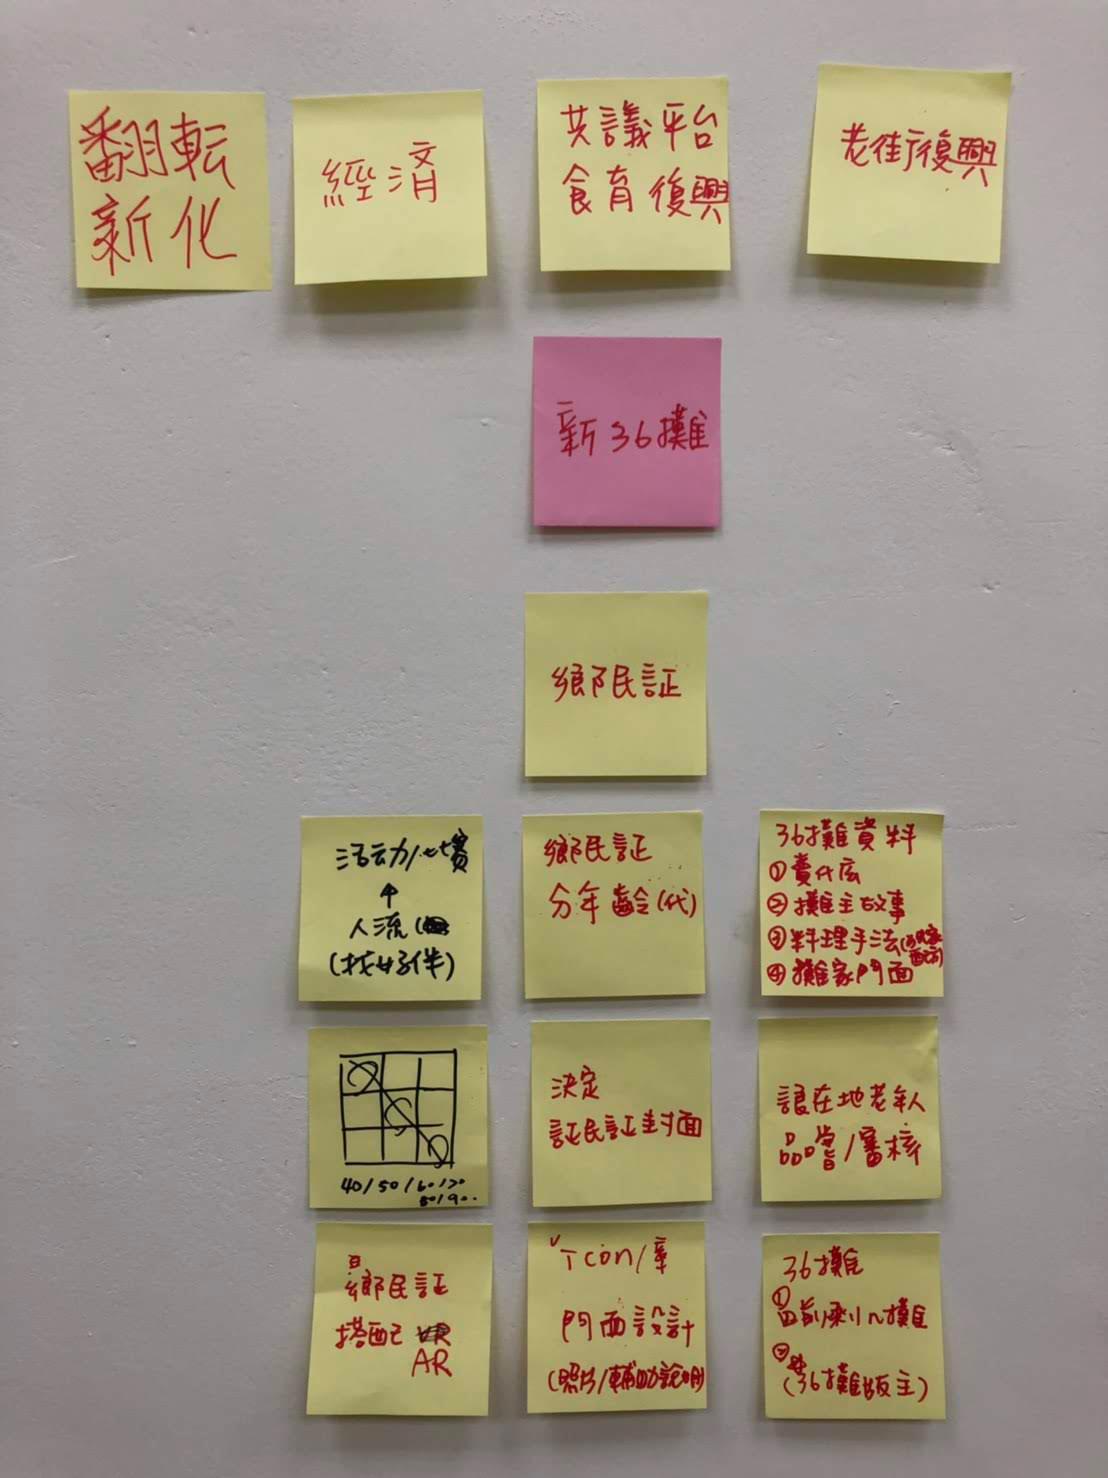 翻転
新化
經済
共議平台
食育復興
老街復興
新36攤
鄉民証
活动力/比賽
↑
人流
(找好伴)
鄉民証
分年齡(代)
36攤資料
①賣什広
②攤主故事
③料理手法(
④攤家門面
40/50/60/70
80/90..
決定
証民証封面
讓在地老年人
品嘗/審核
鄉民証
搭配
AR
icon/章
門面設計
(照片/輔助說明)
36攤
①目前剩几攤
②
(36攤版主)